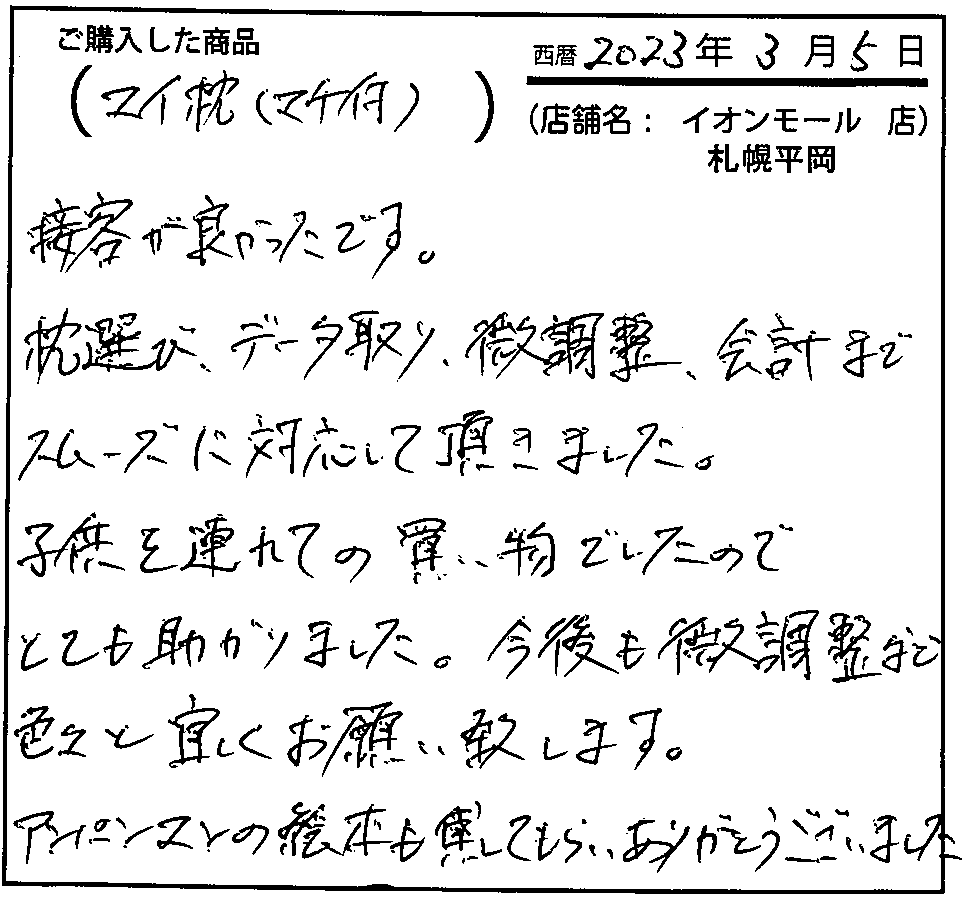 ご購入した商品
(マイ枕(マチ付))
西暦 2023年 3月 5日
(店舗名: イオンモール 店)
札幌平岡
接客が良かったです。
枕選び、データ取り、微調整、会計まで
スムーズに対応して頂きました。
子供を連れての買い物でしたので
とても助かりました。今後も微調整など
色々と宜しくお願い致します。
アンパンマンの絵本も貸してもらいありがとうございました